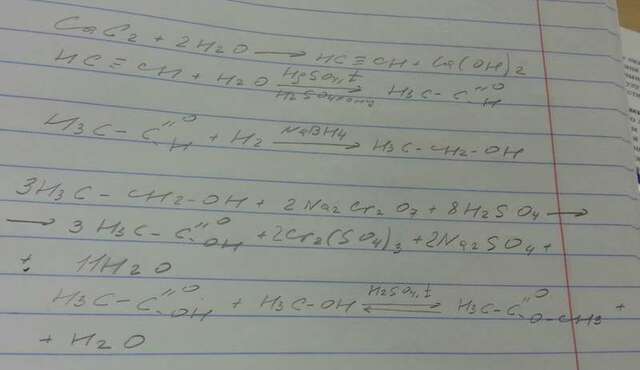 CaC2 + 2H2O ⟶ HC≡CH + Ca(OH)2
HC≡CH + H2O ⟶ (HgSO4, t / H2SO4) H3C-C(=O)H
H3C-C(=O)H + H2 ⟶ (NaBH4) H3C-CH2-OH
3H3C-CH2-OH + 2Na2Cr2O7 + 8H2SO4 ⟶
⟶ 3H3C-C(=O)OH + 2Cr2(SO4)3 + 2Na2SO4 +
+ 11H2O
H3C-C(=O)OH + H3C-OH ⇄ (H2SO4, t) H3C-C(=O)O-CH3 +
+ H2O